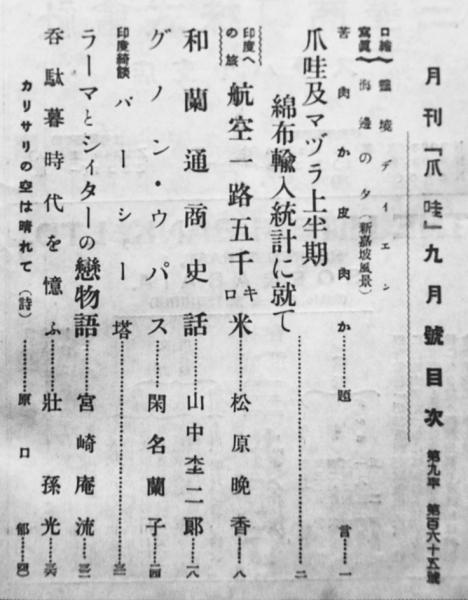 月刊「爪哇」九月號目次 第九年 第百六十五號
口繪寫眞 靈境ディエン
海邊の夕(新嘉坡風景)
苦肉か皮肉か……題言…一
爪哇及マヅラ上半期
綿布輸入統計に就て……二
印度への旅 航空一路五千キロ米……松原晩香…八
和蘭通商史話……山中杢二郎…一八
グノン・ウパス……閑名蘭子…二四
印度綺談 バーシー塔……三
ラーマとシィターの戀物語……宮崎庵流…三
呑駄暮時代を憶ふ……壯孫光…
カリサリの空は晴れて(詩)……原口郁……